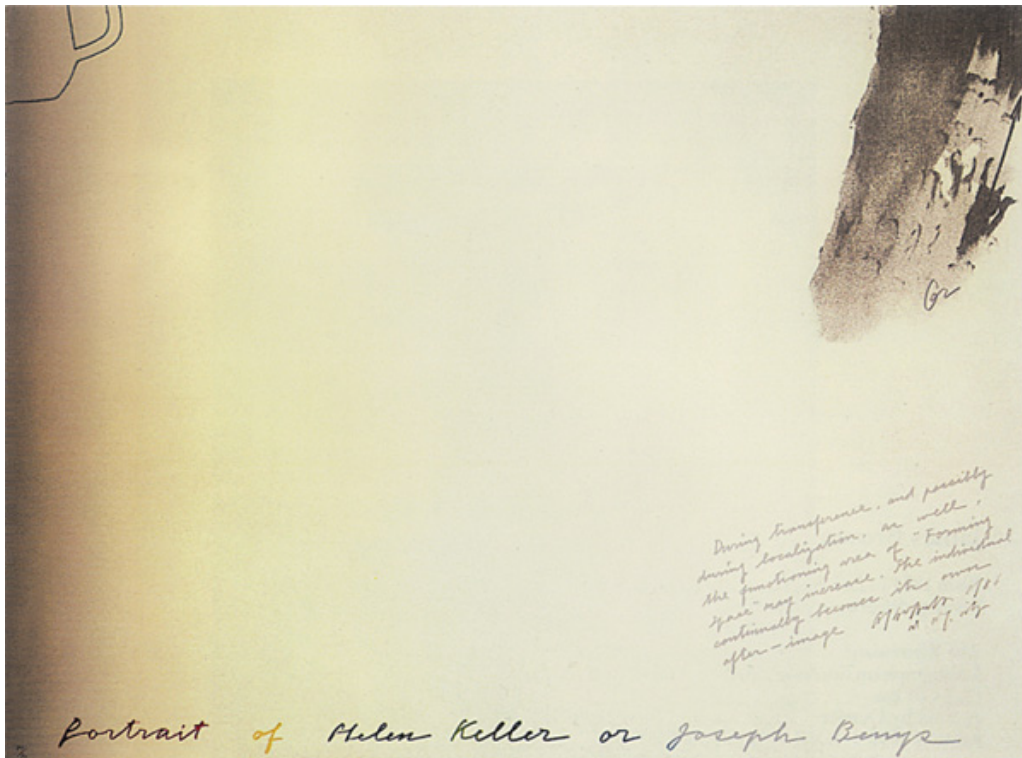 During transference, and possibly
during localization, as well,
the functioning area of "Forming
Space" may increase. The individual
continually becomes its own
after-image
Portrait of Helen Keller or Joseph Beuys